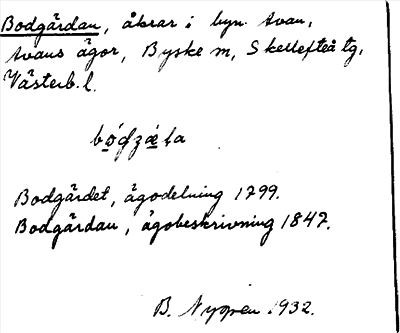 Bodgärdan, åkrar i byn Avan,
Avans ägor, Byske m, Skellefteå tg,
Västerb. l.
Bodgärdet, ägodelning 1799.
Bodgärdan, ägobeskrivning 1847.
B. Nygren 1932.